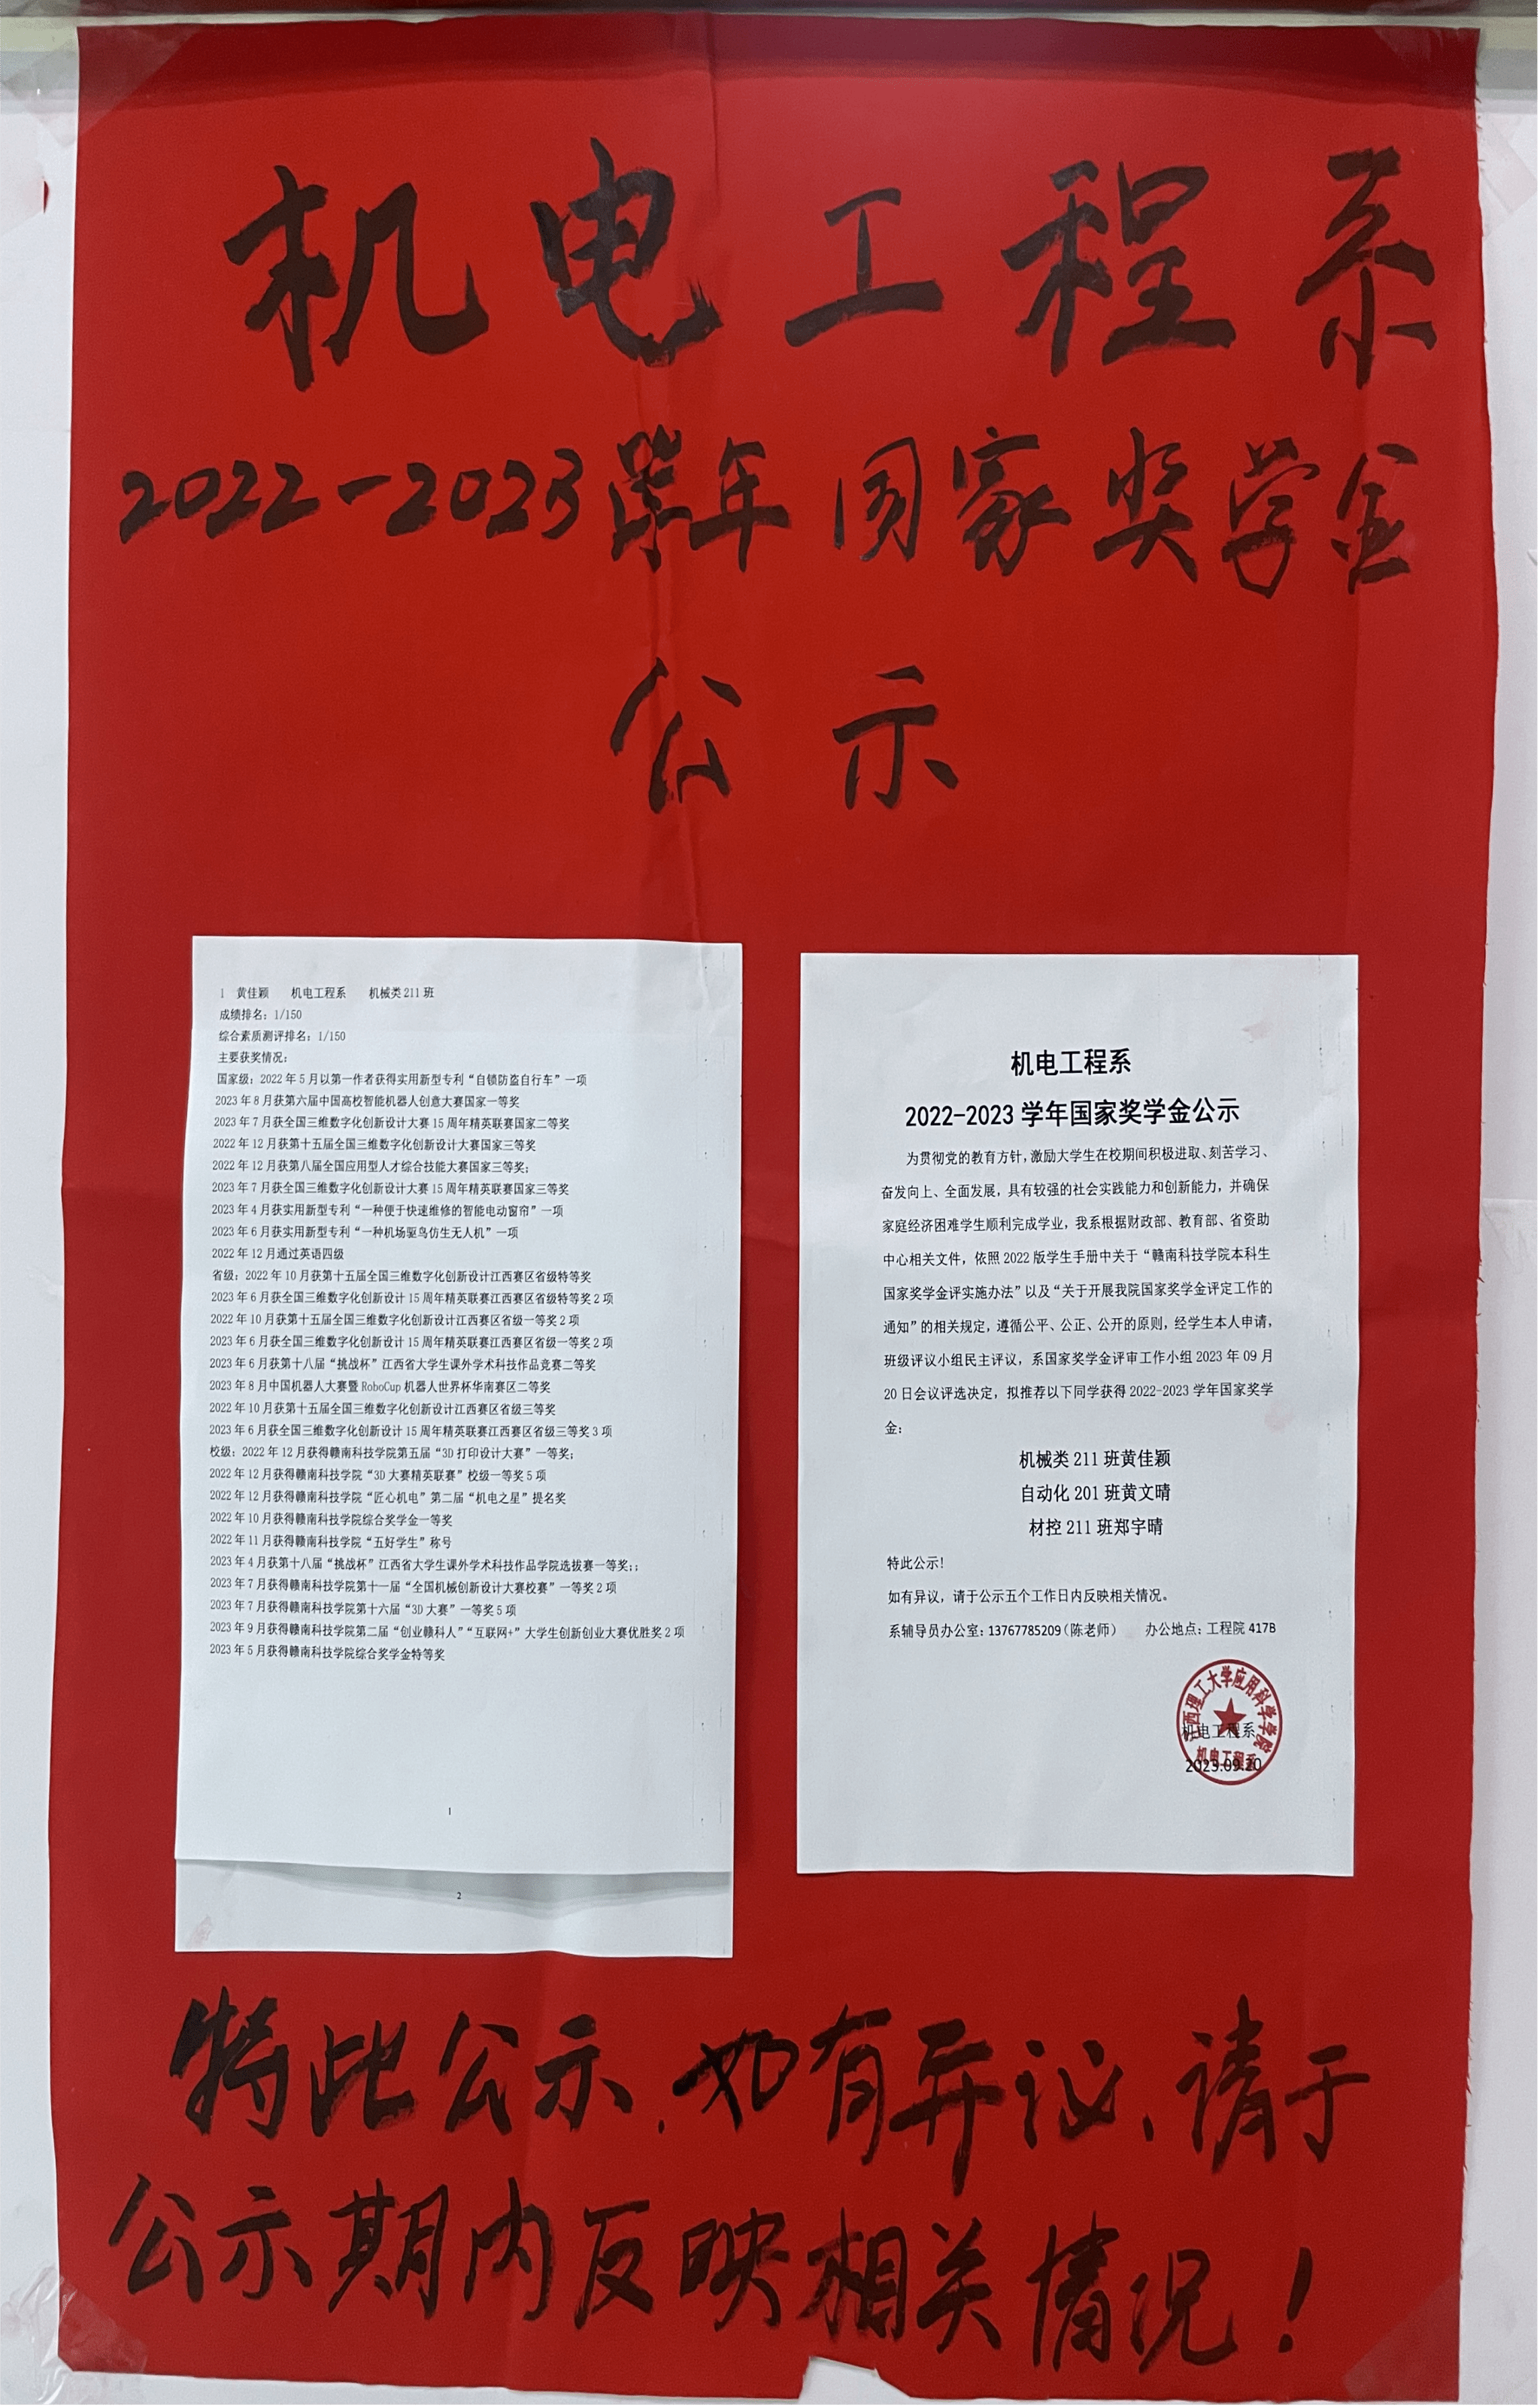 机电工程系
2022-2023学年国家奖学金
公示
1 黄佳颖 机电工程系 机械类211班
成绩排名：1/150
综合素质测评排名：1/150
主要获奖情况：
国家级：2022年5月以第一作者获得实用新型专利“自锁防盗自行车”一项
2023年8月获第六届中国高校智能机器人创意大赛国家一等奖
2023年7月获全国三维数字化创新设计大赛15周年精英联赛国家二等奖
2022年12月获第十五届全国三维数字化创新设计大赛国家三等奖
2022年12月获第八届全国应用型人才综合技能大赛国家三等奖；
2023年7月获全国三维数字化创新设计大赛15周年精英联赛国家三等奖
2023年4月获实用新型专利“一种便于快速维修的智能电动窗帘”一项
2023年6月获实用新型专利“一种机场驱鸟仿生无人机”一项
2022年12月通过英语四级
省级：2022年10月获第十五届全国三维数字化创新设计江西赛区省级特等奖
2023年6月获全国三维数字化创新设计15周年精英联赛江西赛区省级特等奖2项
2022年10月获第十五届全国三维数字化创新设计江西赛区省级一等奖2项
2023年6月获全国三维数字化创新设计15周年精英联赛江西赛区省级一等奖2项
2023年6月获第十八届“挑战杯”江西省大学生课外学术科技作品竞赛二等奖
2023年8月中国机器人大赛暨RoboCup机器人世界杯华南赛区二等奖
2022年10月获第十五届全国三维数字化创新设计江西赛区省级三等奖
2023年6月获全国三维数字化创新设计15周年精英联赛江西赛区省级三等奖3项
校级：2022年12月获得赣南科技学院第五届“3D打印设计大赛”一等奖；
2022年12月获得赣南科技学院“3D大赛精英联赛”校级一等奖5项
2022年12月获得赣南科技学院“匠心机电”第二届“机电之星”提名奖
2022年10月获得赣南科技学院综合奖学金一等奖
2022年11月获得赣南科技学院“五好学生”称号
2023年4月获第十八届“挑战杯”江西省大学生课外学术科技作品学院选拔赛一等奖；；
2023年7月获得赣南科技学院第十一届“全国机械创新设计大赛校赛”一等奖2项
2023年7月获得赣南科技学院第十六届“3D大赛”一等奖5项
2023年9月获得赣南科技学院第二届“创业赣科人”“互联网+”大学生创新创业大赛优胜奖2项
2023年5月获得赣南科技学院综合奖学金特等奖
1
2
机电工程系
2022-2023学年国家奖学金公示
为贯彻党的教育方针，激励大学生在校期间积极进取、刻苦学习、
奋发向上、全面发展，具有较强的社会实践能力和创新能力，并确保
家庭经济困难学生顺利完成学业，我系根据财政部、教育部、省资助
中心相关文件，依照2022版学生手册中关于“赣南科技学院本科生
国家奖学金评实施办法”以及“关于开展我院国家奖学金评定工作的
通知”的相关规定，遵循公平、公正、公开的原则，经学生本人申请，
班级评议小组民主评议，系国家奖学金评审工作小组2023年09月
20日会议评选决定，拟推荐以下同学获得2022-2023学年国家奖学
金：
机械类211班黄佳颖
自动化201班黄文晴
材控211班郑宇晴
特此公示！
如有异议，请于公示五个工作日内反映相关情况。
系辅导员办公室：13767785209（陈老师） 办公地点：工程院417B
江西理工大学应用科学学院
机电工程系
机电工程系
2023.09.20
特此公示，如有异议，请于
公示期内反映相关情况！